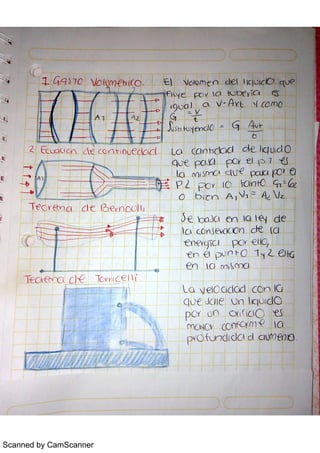 1. Gasto Volumétrico.
El volumen del liquido que
fluye por la tuberia es
igual a V=Avt y como
G = V/t
Sustituyendo = G Avt/t
A1 A2
2. Ecuación de continuidad
La cantidad de liquido
que pasa por el p.1 es
la misma que pasa por el
P.2 por lo tanto G1=G2
o bien A1V1 = A2V2
A1
Teorema de Bernoulli
Se basa en la ley de
la conservación de la
energia por ello,
en el punto 1 y 2 ella
en la misma
Teorema de Torricelli
La velocidad con la
que sale un liquido
por un orificio es
mayor conforme la
profundidad aumenta.
Scanned by CamScanner